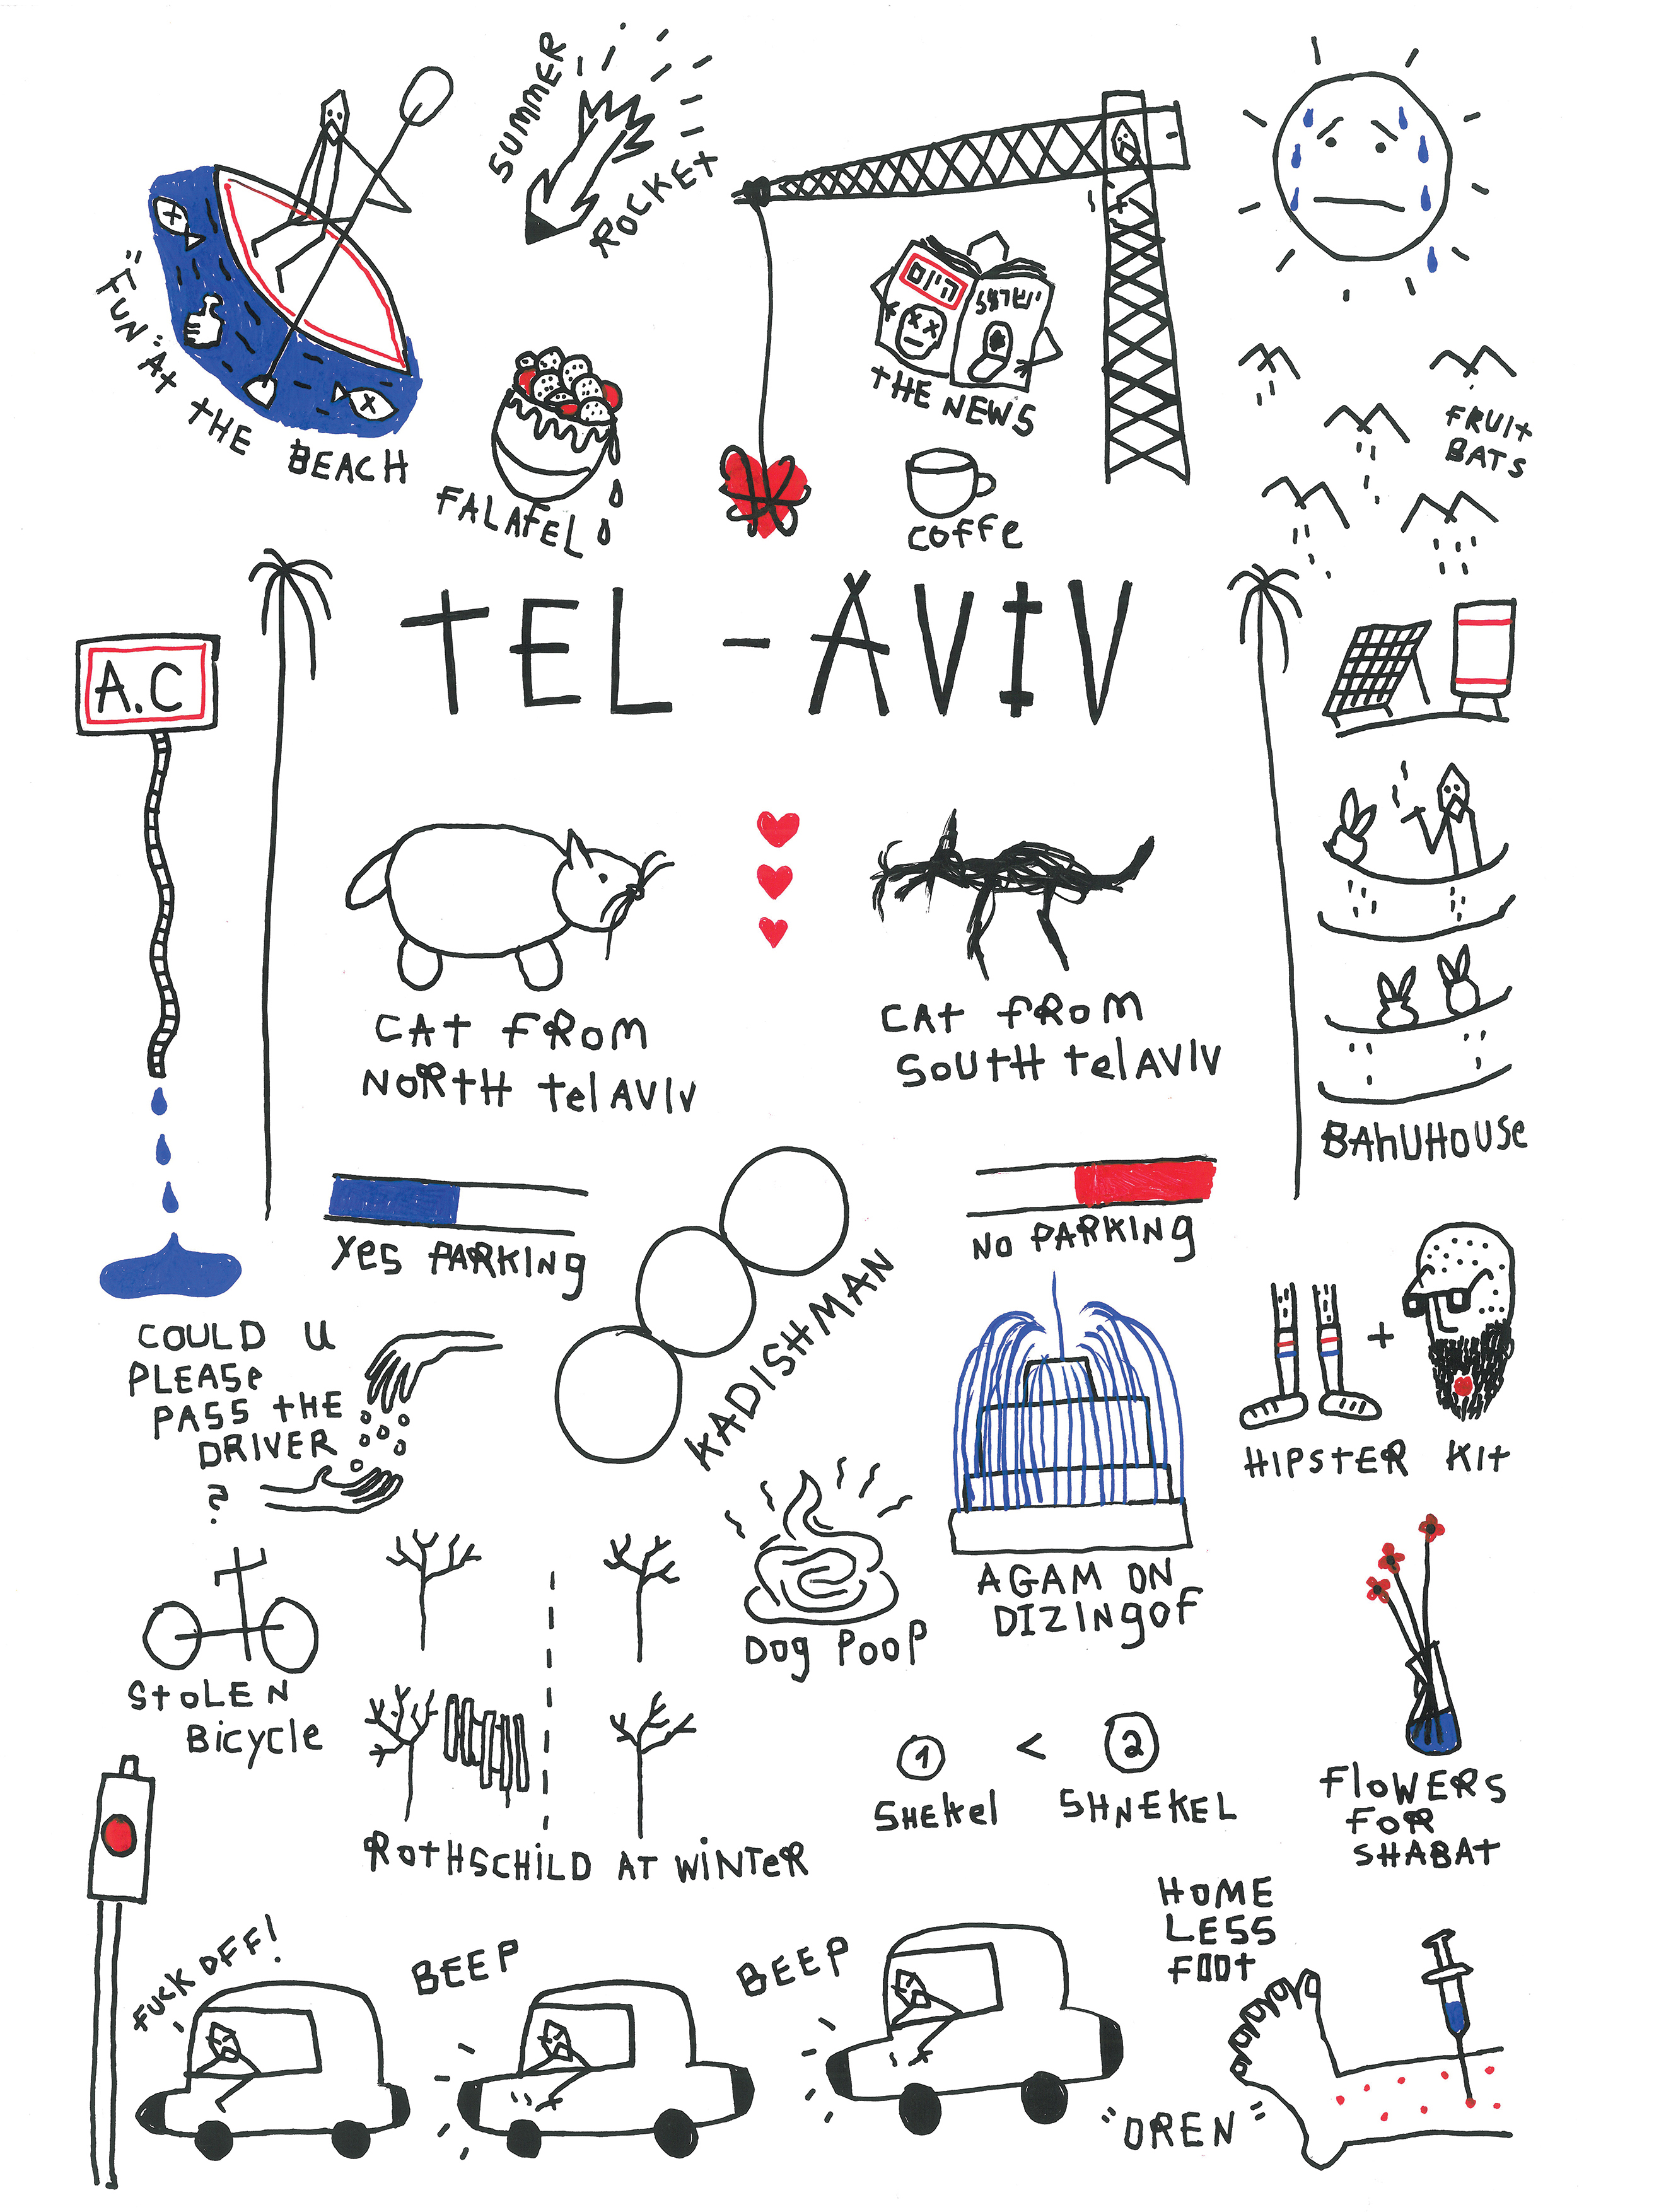 SUMMER
ROCKET
"FUN" At tHE BEACH
FALAFEL
היום
ישראל
tHE NEWS
COFFe
FRUIt
BATS
tEL-AVIV
A.C
CAt FROM
NORtH telAVIV
CAt FROM
SOUtH telAVIV
BAhUHOUSe
Yes PARKINg
NO PARKINg
KADISHMAN
COULD U
PLEASe
PASS tHE
DRIVER
?
HIPSTER KIt
+
AGAM ON
DIZINgOF
DOg POOP
StOLEN
Bicycle
ROtHSCHiLD AT WiNTeR
1 < 2
SHEKel SHNEKEL
FlOWERS
FOR
SHABAt
HOME
LESS
FOOt
FUCK OFF!
BEEP
BEEP
"OREN"